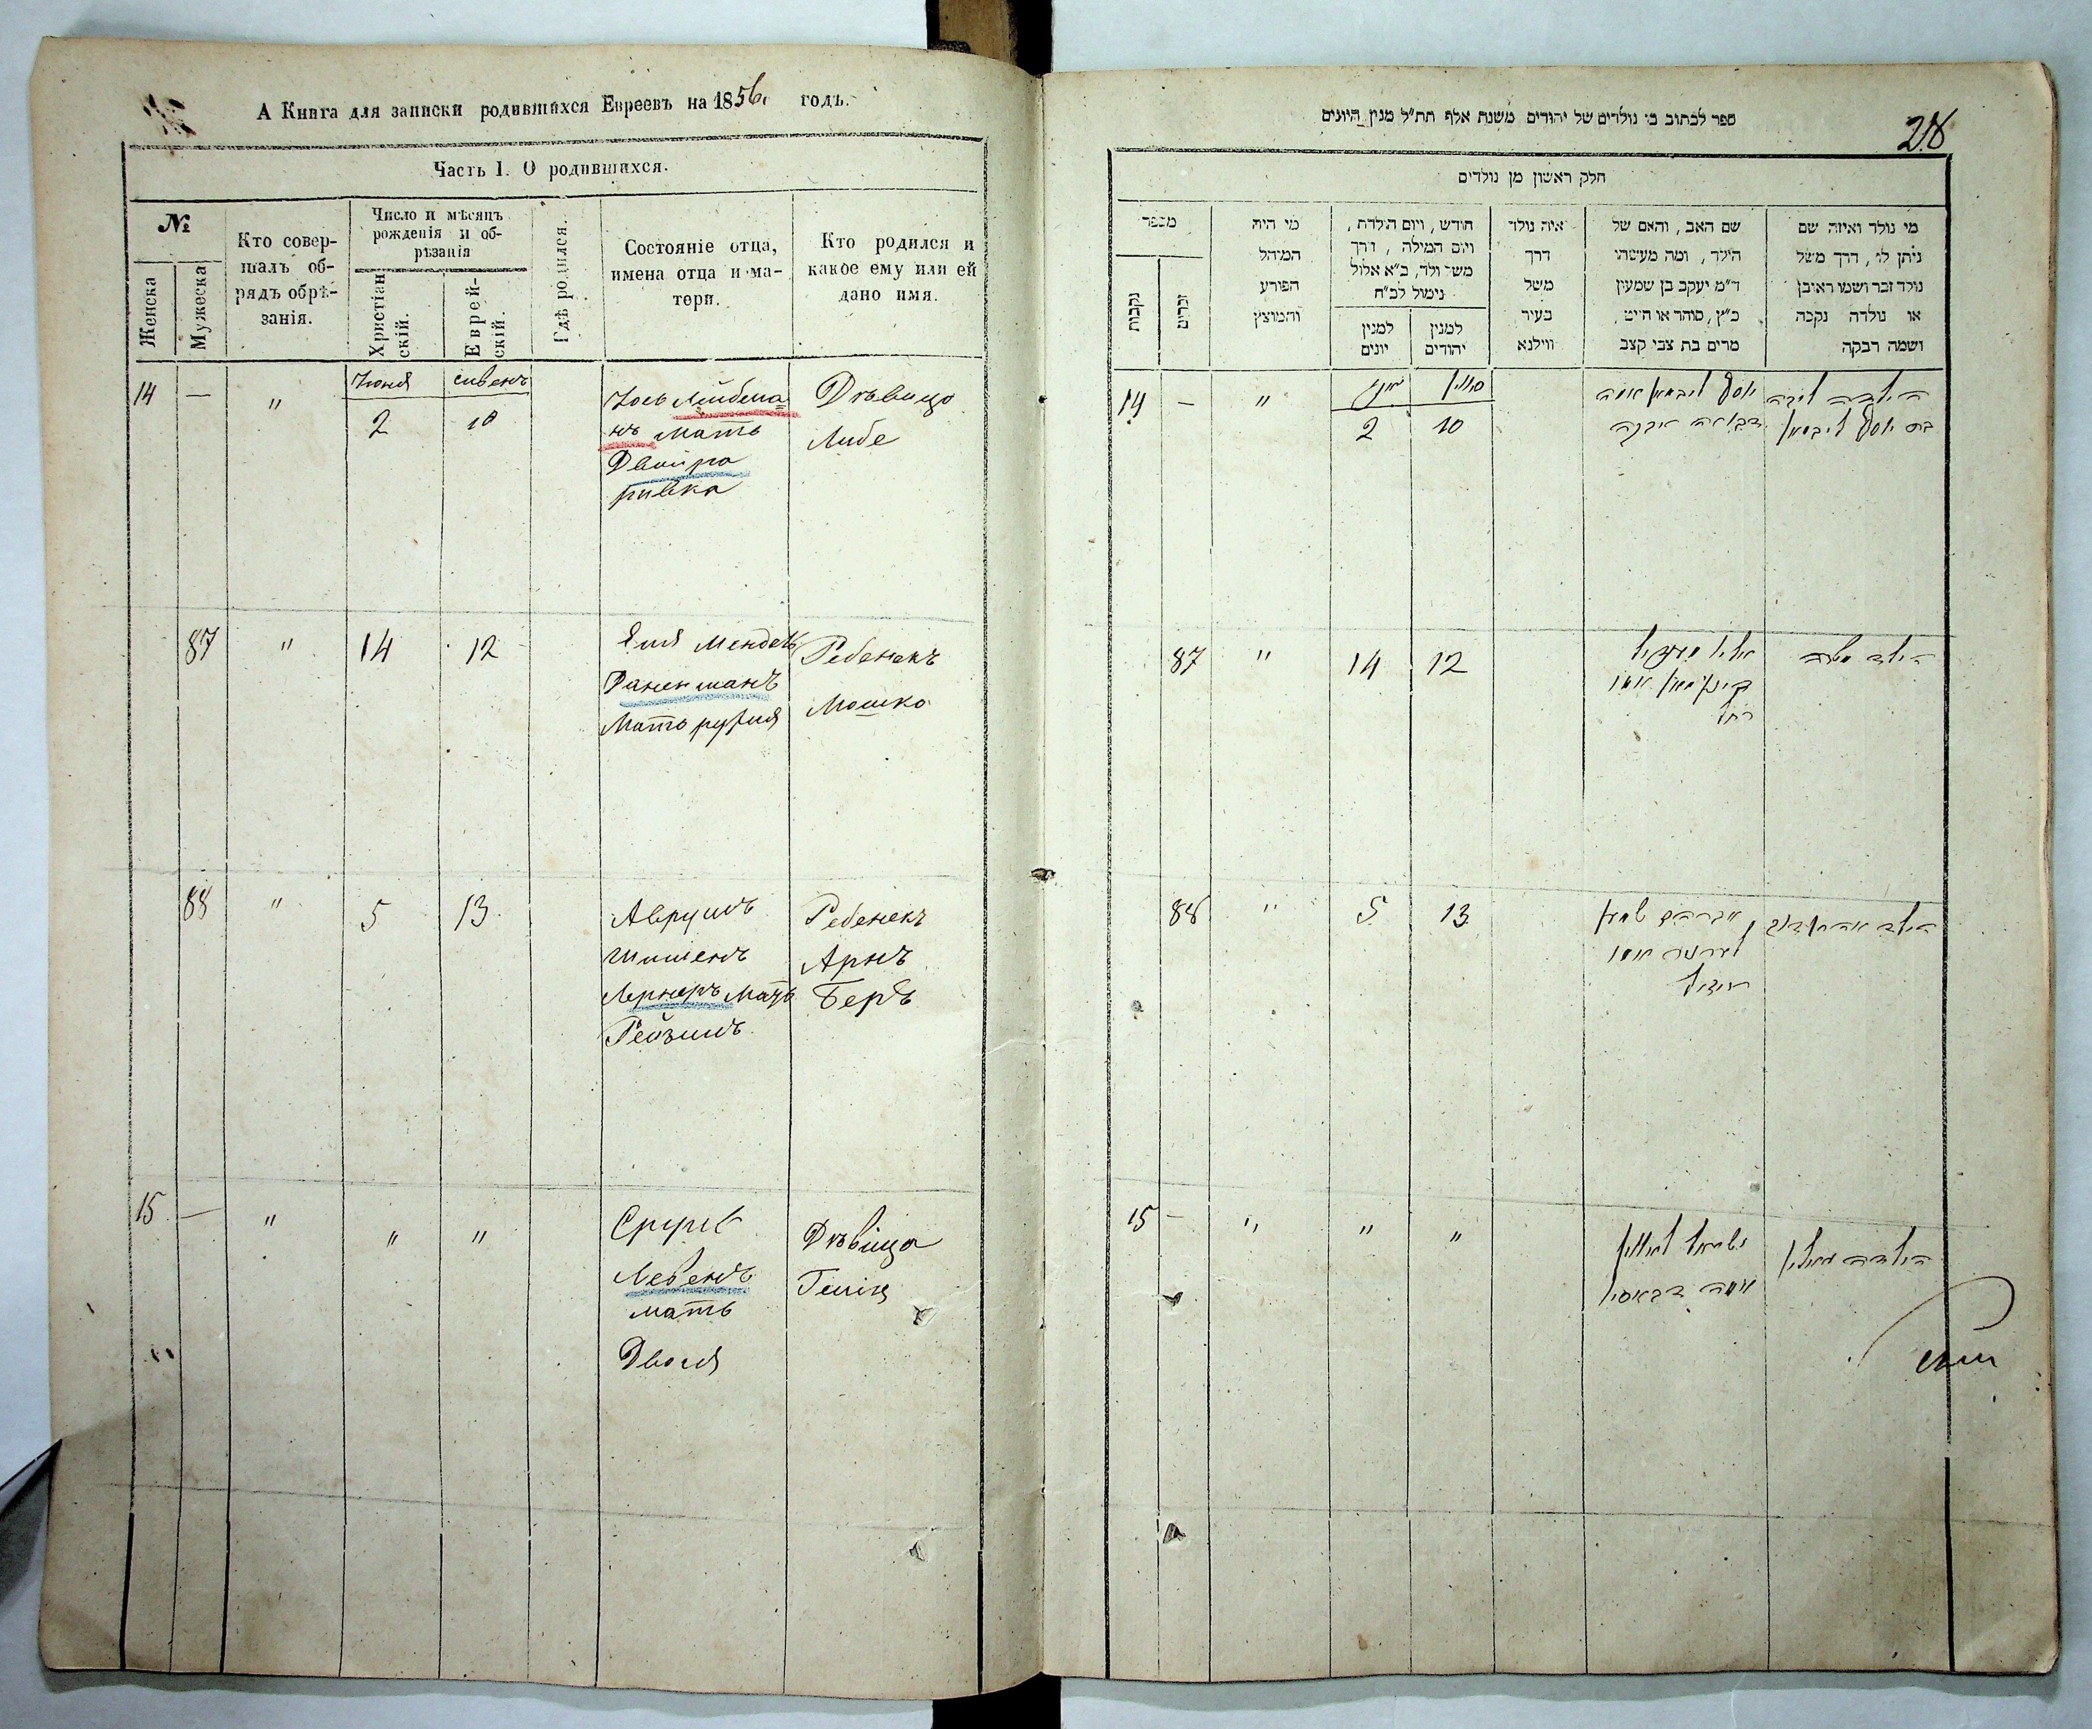 А Книга для записки родившихся Евреевъ на 1856. годъ.
Часть I. О родившихся.
№
Женска
Мужеска
Кто совер-
шалъ об-
рядъ обрѣ-
занія.
Число и мѣсяцъ
рожденія и об-
рѣзанія
Христіан
скій.
Еврей-
скій.
Гдѣ родился.
Состояніе отца,
имена отца и ма-
тери.
Кто родился и
какое ему или ей
дано имя.
14 — "
Іюня
2
сивенъ
10
Іось Лейбма
нъ мать
Двойра
ривка
Дѣвицо
Либе
87 " 14 12
Эля Мендель
Мать
Ребенекъ
Мошко
88 " 5 13
Аврумъ
Шимень
Лернеръ Мать
Рейзиль
Ребенекъ
Арнъ
Беръ
15 — " " "
Сруль
Левенъ
мать
Двося
Дѣвица
ספר לכתוב בו נולדים של יהודים משנת אלף תת״ל מנין היונים
28
חלק ראשון מן נולדים
מספר
נקבות
זכרים
מי היה
המוהל
הפורע
והמוצץ
חודש, ויום הולדת,
ויום המילה, דרך
משל ולד, כ״א אלול
נימול לכ״ח
למנין
יונים
למנין
יהודים
איה נולד
דרך
משל
בעיר
ווילנא
שם האב, והאם של
הילד, ומה מעשהו
ד״מ יעקב בן שמעון
כ״ץ, סוחר או חייט,
מרים בת צבי קצב
מי נולד ואיזה שם
ניתן לו, דרך משל
נולד זכר ושמו ראובן
או נולדה נקבה
ושמה רבקה
14 — "
יוני
2
סיון
10
יוסף ליבמאן אמה
דבורה רבקה
הילדה ליבה
בת יוסף ליבמאן
87 " 14 12
אלי' מענדיל
אמו
רחל
הילד משה
88 " 5 13
אברהם שמעון
לערנער אמו
רייזיל
הילד אהרן דוב
15 — " " "
ישראל לעווין
אמה דבאסי'
הילדה